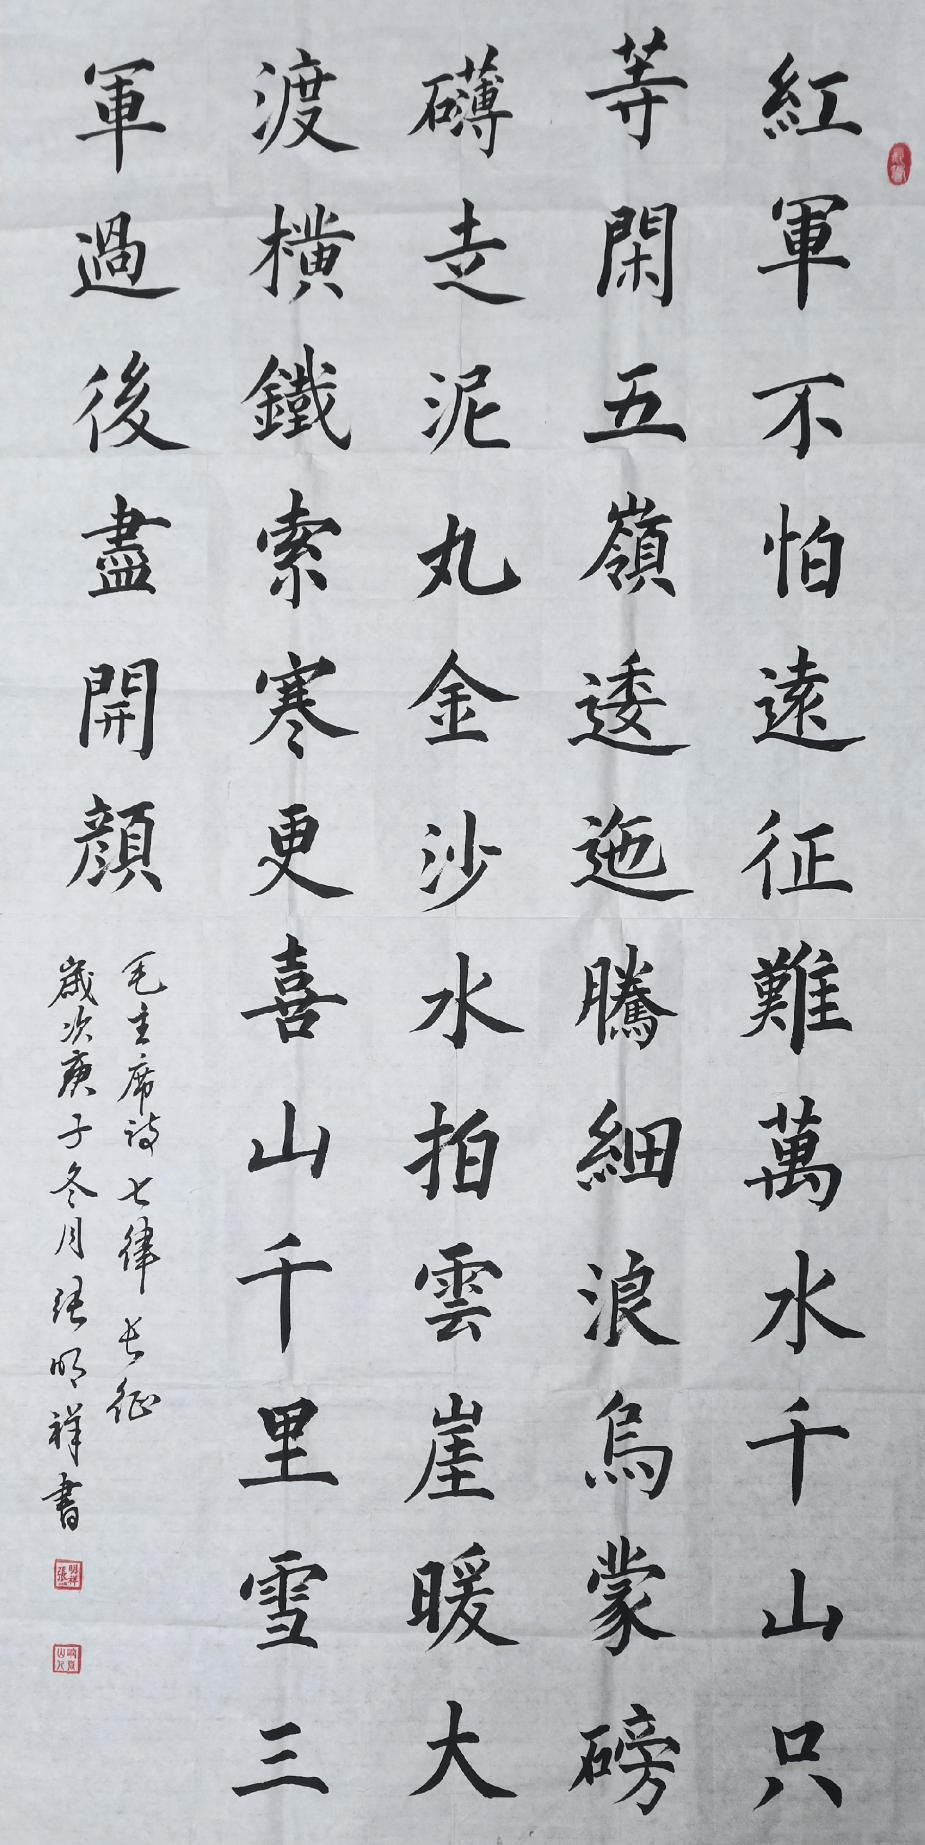 紅軍不怕遠征難萬水千山只
等閑五嶺逶迤騰細浪烏蒙磅
礴走泥丸金沙水拍雲崖暖大
渡橫鐵索寒更喜山千里雪三
軍過後盡開顔
毛主席詩七律長征
歲次庚子冬月張明祥書
明祥
張